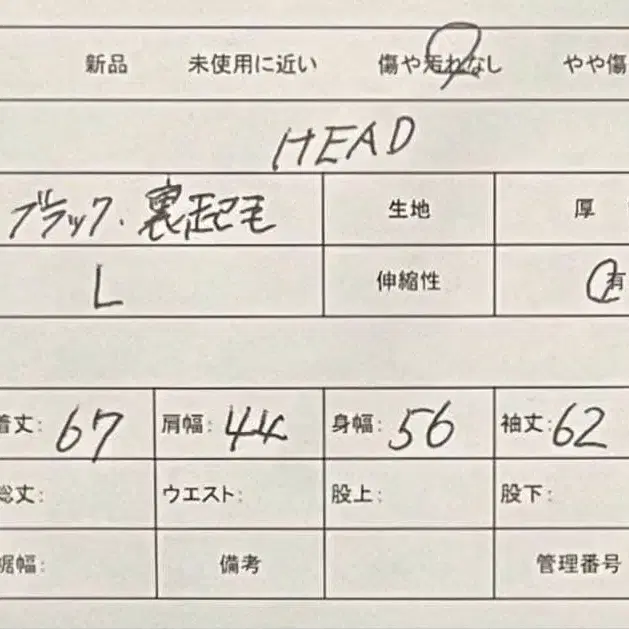 新品 未使用に近い 傷や汚れなし やや傷
HEAD
ブラック・裏起毛 生地 厚
L 伸縮性 有
着丈: 67 肩幅: 44 身幅: 56 袖丈: 62
総丈: ウエスト: 股上: 股下:
裾幅: 備考 管理番号